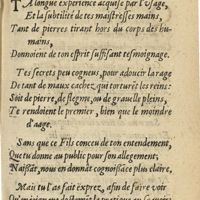 TA longue experience acquise par l'Usage,
Et la subtilité de tes maistresses mains,
Tant de pierres tirant hors du corps des hu-
mains,
Donnoient de ton esprit suffisant tesmoignage.
Tes secrets peu cogneus, pour adoucir la rage
De tant de maux cachez, qui torturẽt les reins:
Soit de pierre, de flegme, ou de grauelle pleins,
Te rendoient le premier, bien que le moindre
d'aage.
Sans que ce Fils conceu de ton entendement,
Que tu donne au public pour son allegement,
Naissãt, nous en donnât cognoissãce plus claire,
Mais tu l'as fait exprez, afin de faire voir